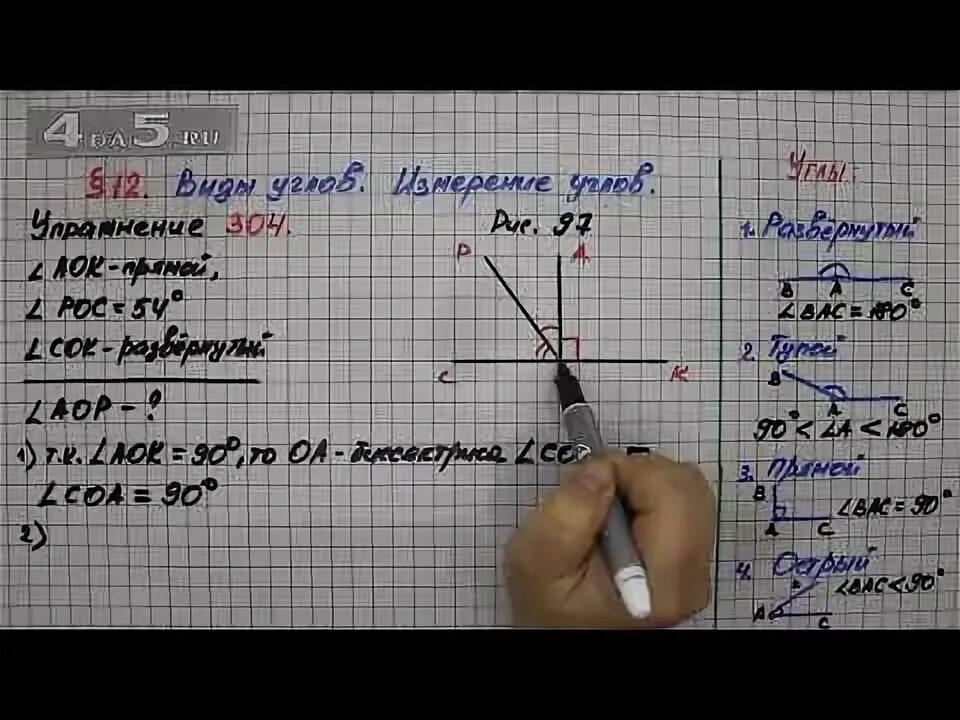 4 на 5.ru
§12. Виды углов. Измерение углов.
Упражнение 304.
∠AOK - прямой,
∠POC = 54°
∠COK - развёрнутый
∠AOP - ?
1) т.к. ∠AOK = 90°, то OA - биссектриса
∠COA = 90°
2)
Рис. 97
P A
C K
Углы
1. Развёрнутый
B A C
∠BAC = 180°
2. Тупой
B
A C
90° < ∠A < 180°
3. Прямой
B
∠BAC = 90°
A C
4. Острый
∠BAC < 90°
A C